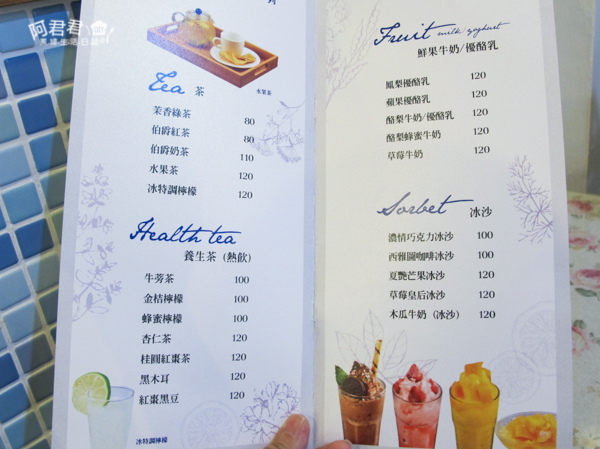 阿君君
Tea 茶
水果茶
茉香綠茶 80
伯爵紅茶 80
伯爵奶茶 110
水果茶 120
冰特調檸檬 120
Health tea
養生茶（熱飲）
牛蒡茶 100
金桔檸檬 100
蜂蜜檸檬 100
杏仁茶 120
桂圓紅棗茶 120
黑木耳 120
紅棗黑豆 120
冰特調檸檬
Fruit milk/yoghurt
鮮果牛奶/優酪乳
鳳梨優酪乳 120
蘋果優酪乳 120
酪梨牛奶/優酪乳 120
酪梨蜂蜜牛奶 120
草莓牛奶 120
Sorbet 冰沙
濃情巧克力冰沙 100
西雅圖咖啡冰沙 100
夏艷芒果冰沙 120
草莓皇后冰沙 120
木瓜牛奶（冰沙） 120